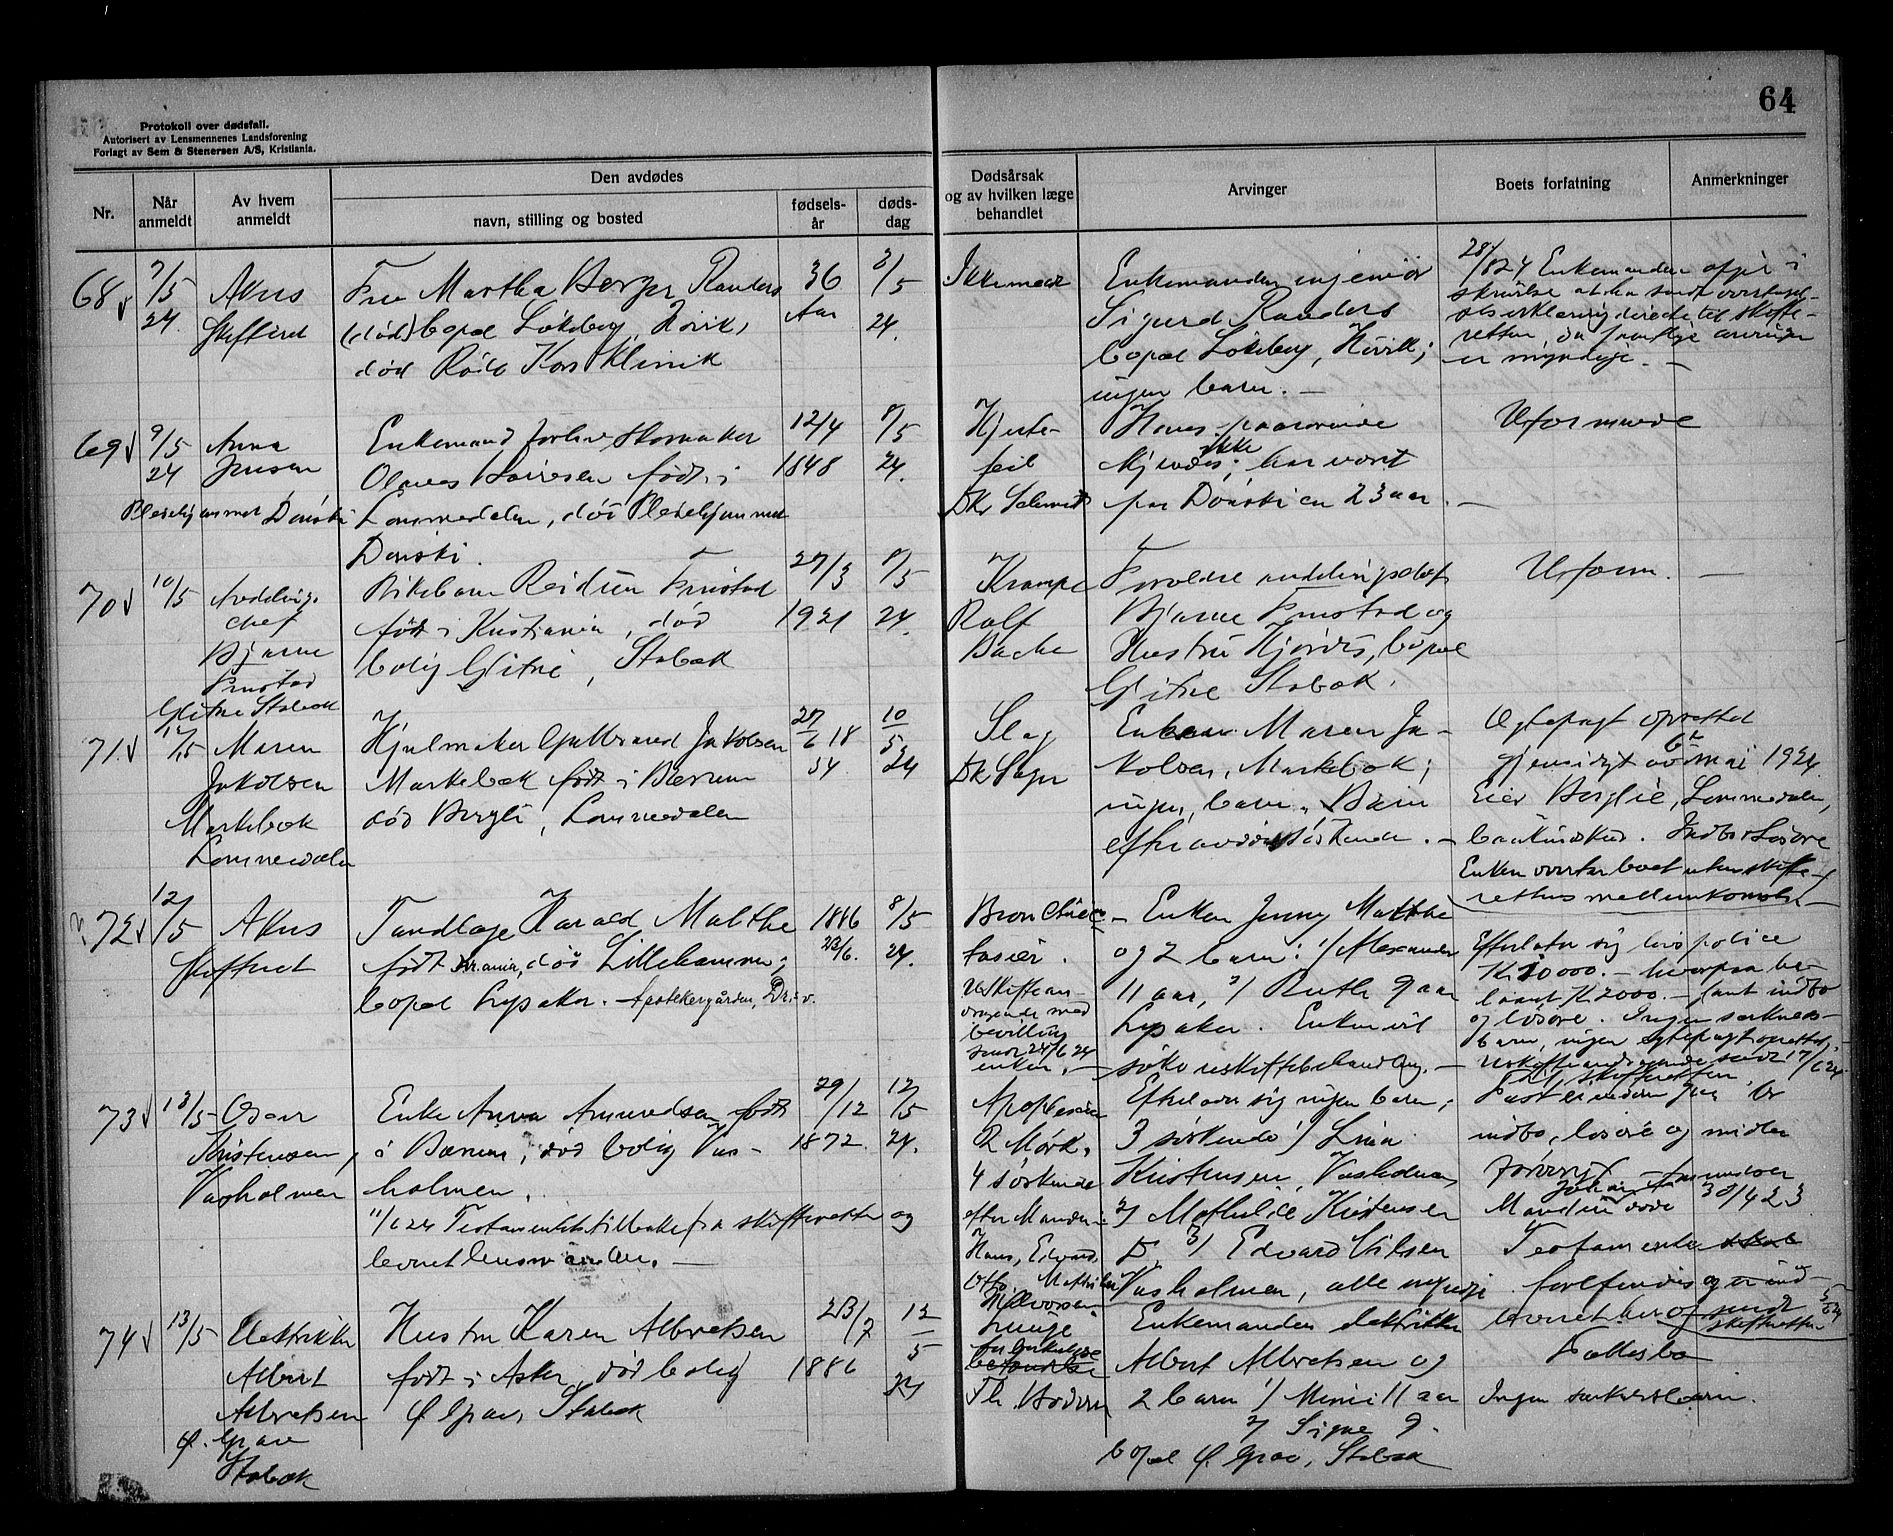 64
Protokoll over dødsfall.
Autorisert av Lensmennenes Landsforening
Forlagt av Sem & Stenersen A/S, Kristiania.
Nr.
Når anmeldt
Av hvem anmeldt
Den avdødes
navn, stilling og bosted
fødsels-år
døds-dag
Dødsårsak og av hvilken læge behandlet
Arvinger
Boets forfatning
Anmerkninger
68
7/5 24
Akers
Skifteret
Fru Martha Berger Randers
(død) bopæl Løkeberg, Høvik,
død Røde Kors Klinik
36 Aar
3/5 24.
Enkemanden ingeniør
Sigurd Randers
bopæl Løkeberg, Høvik;
ingen barn. —
28/8 24 Enkemanden opgir i
skrivelse at ha sendt overtagel-
seserklæring direkte til skifte-
retten, da samtlige arvinger
er myndige. —
69
9/5 24
Anna
Jensen
Pleiehjemmet Dønski
Enkemand forhv. skomaker
født i
Lommedalen, død Pleiehjemmet
Dønski.
12/4 1848
8/5 24.
Hjerte-
feil
Hans paarørende
kjendes ikke; har været
paa Dønski ca 23 aar. —
Uformuende
70
10/5
Avdelings
chef
Bjarne
Glitne Stabæk
Pikebarn Reidun
født i Kristiania, død
bolig Glitne, Stabæk
27/3 1921
8/5 24.
Krampe
Rolf
Bache
Forældre avdelingschef
Bjarne og
Hustru Hjørdis, bopæl
Glitne Stabæk.
Uform. —
71
12/5
Maren
Jakobsen
Markebæk
Lommedalen
Hjulmaker Gulbrand Jakobsen
Markebæk født i Bærum
død Bergli, Lommedalen
27/6 18 54
10/5 24
Slag
Enken Maren Ja-
kobsen, Markebæk;
ingen barn. Barn
efter avdødes søskende. —
Egtepagt oprettet
gjensidig 6de mai 1924.
Eier Berglie, Lommedalen,
bankindskud. Indbo & Løsøre
Enken overtar boet uten skifte-
rettens mellemkomst —
72
12/5
Akers
Skifteret
Tandlæge Harald Malthe
født Kr.ania, død Lillehammer;
bopæl Lysaker. Apotekergården, Dr.-v.
1886 23/6.
8/5 24.
Bronchiec-
tasier.
Uskiftean-
dragende med
bevilling
sendt 24/6 24
enken. —
Enken Jenny Malthe
og 2 barn: 1/ Alexander
11 aar, 2/ Ruth 9 aar
Lysaker. Enken vil
søke uskiftebehandling. —
Efterlater sig livspolice
Kr 10000. — hvorpaa be-
laant Kr 2000. — samt indbo
og løsøre. Ingen særkuls-
barn, ingen egtepagt oprettet.
Uskifteandragende sendt 17/6 24
til skifteretten
73
13/5
Oscar
Kristensen,
Vasholmen
Enke Anna Amundsen født
i Bærum, død bolig Vas-
holmen.
11/6 24 Testament tilbake fra skifteretten og
levnet lensmanden. —
29/12 1872.
12/5 24.
Apoplexia
R. Mørk.
4 søskende
efter Manden:
Hans, Edvard,
Efterlater sig ingen barn;
3 søskende 1/ Lina
Kristensen, Vasholmen,
2/ Mathilde Kristensen
D 3/ Edvard Nilsen
Vasholmen, alle myndige.
indbo, løsøre og midler
forøvrig
Manden Johan Amundsen død 30/4 23
Testamente
forefindes og er ind-
levert her og sendt skifteretten
74
13/5
Elektriker
Albert
Albretsen
Ø. Grav
Stabæk
Hustru Karen Albretsen
født i Asker, død bolig
Ø Grav, Stabæk
23/7 1886
12/5 24
Lunge
Enkemanden elektriker
Albert Albretsen og
2 barn 1/ Mimi 11 aar
2/ Signe 9.
bopæl Ø. Grav, Stabæk
Fællesbo
Ingen særkulsbarn.